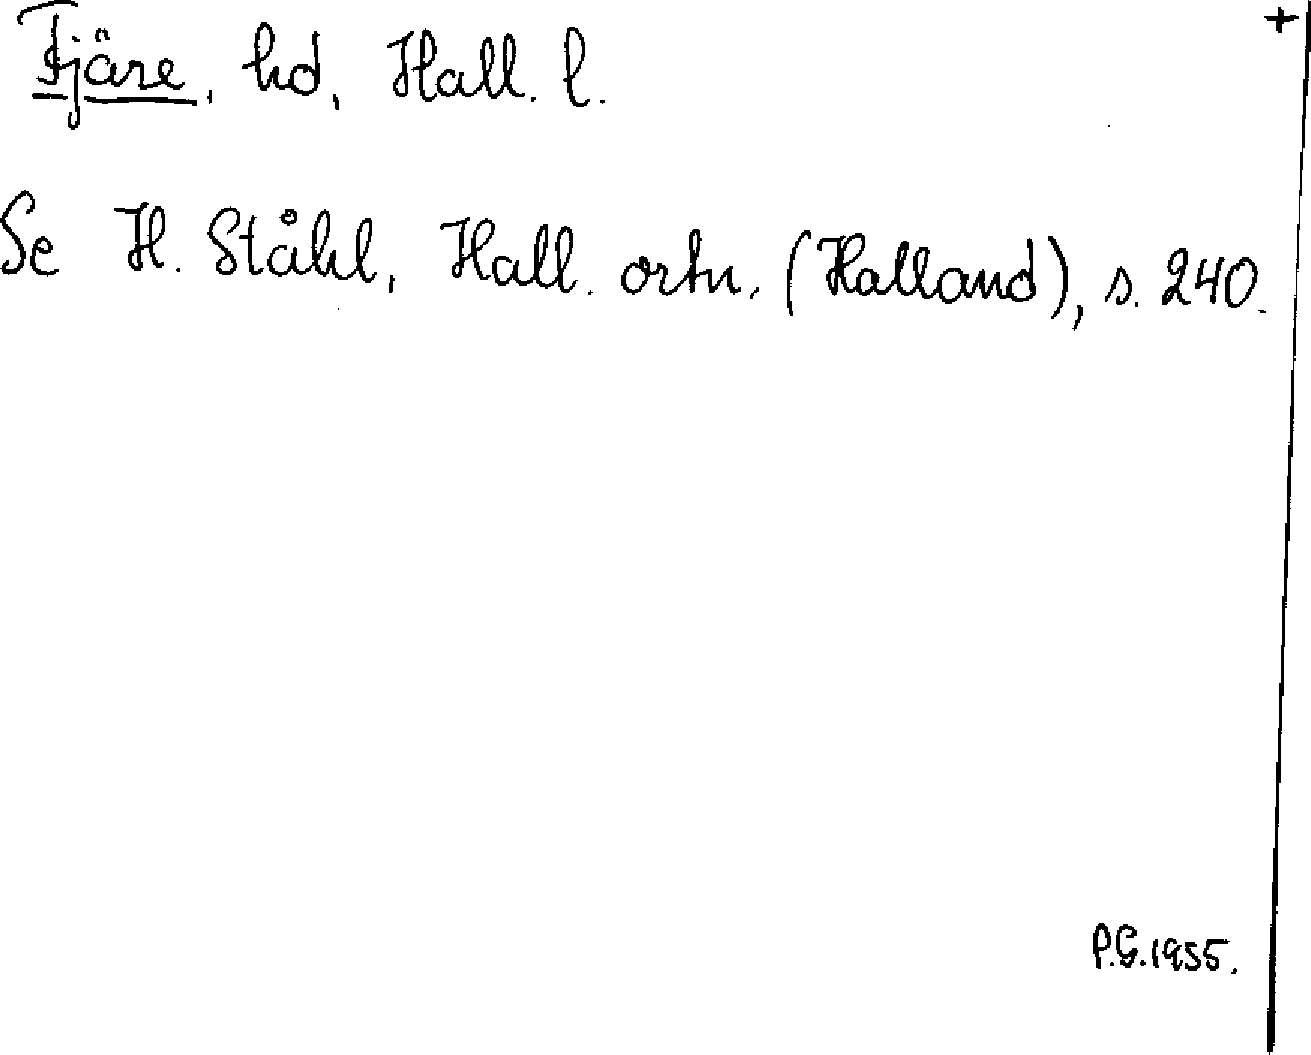 Fjäre, hd, Hall. l. +
Se H. Ståhl, Hall. ortn. (Halland), s. 240.
P.G. 1955.